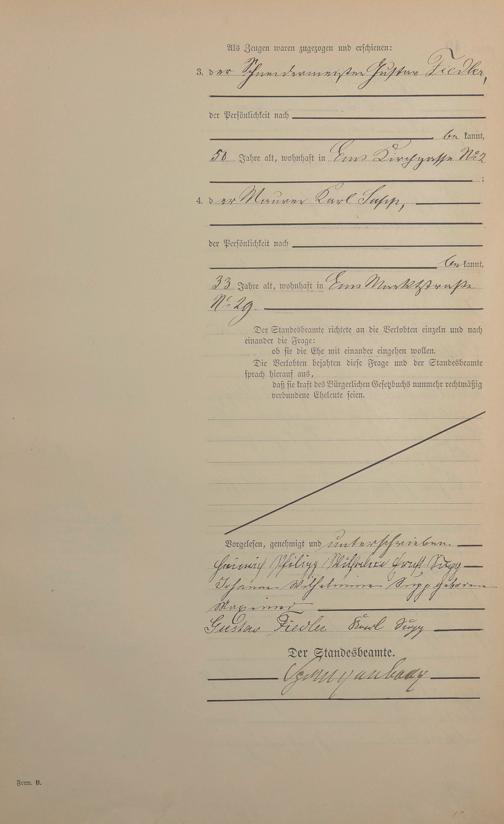 Als Zeugen waren zugezogen und erschienen:
3. der Schneidermeister Gustav Fiedler,
der Persönlichkeit nach
be kannt,
50 Jahre alt, wohnhaft in Ems Kirchgasse No 2
;
4. der Maurer Karl Supp,
der Persönlichkeit nach
be kannt,
33 Jahre alt, wohnhaft in Ems Marktstraße
No 29.
Der Standesbeamte richtete an die Verlobten einzeln und nach
einander die Frage:
ob sie die Ehe mit einander eingehen wollen.
Die Verlobten bejahten diese Frage und der Standesbeamte
sprach hierauf aus,
daß sie kraft des Bürgerlichen Gesetzbuchs nunmehr rechtmäßig
verbundene Eheleute seien.
Vorgelesen, genehmigt und unterschrieben.
Heinrich Philipp Wilhelm Supp
Johanna Wilhelmine Supp geborene
Gustav Fiedler Karl Supp
Der Standesbeamte.
Form. B.